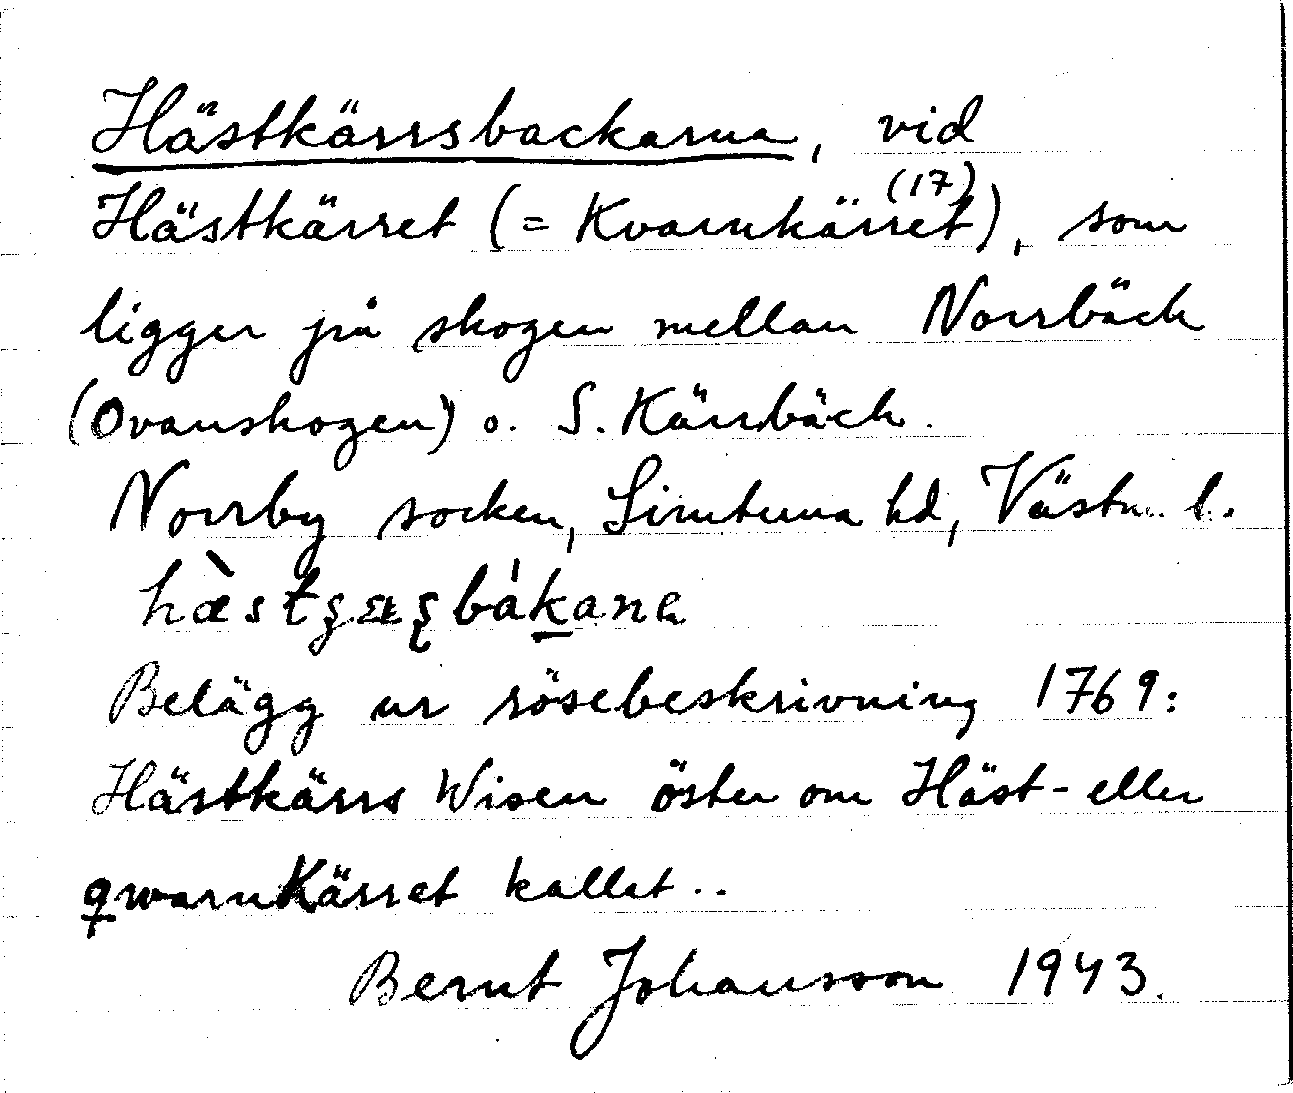 Hästkärrsbackarna, vid
Hästkärret (= Kvarnkärret (17)), som
ligger på skogen mellan Norrbäck
(Ovanskogen) o. S. Kärrbäck.
Norrby socken, Simtuna hd, Västm. l.
Belägg ur rösebeskrivning 1769:
Hästkärrs Wisen öster om Häst- eller
qwarnKärret kallat..
Bernt Johansson 1943.